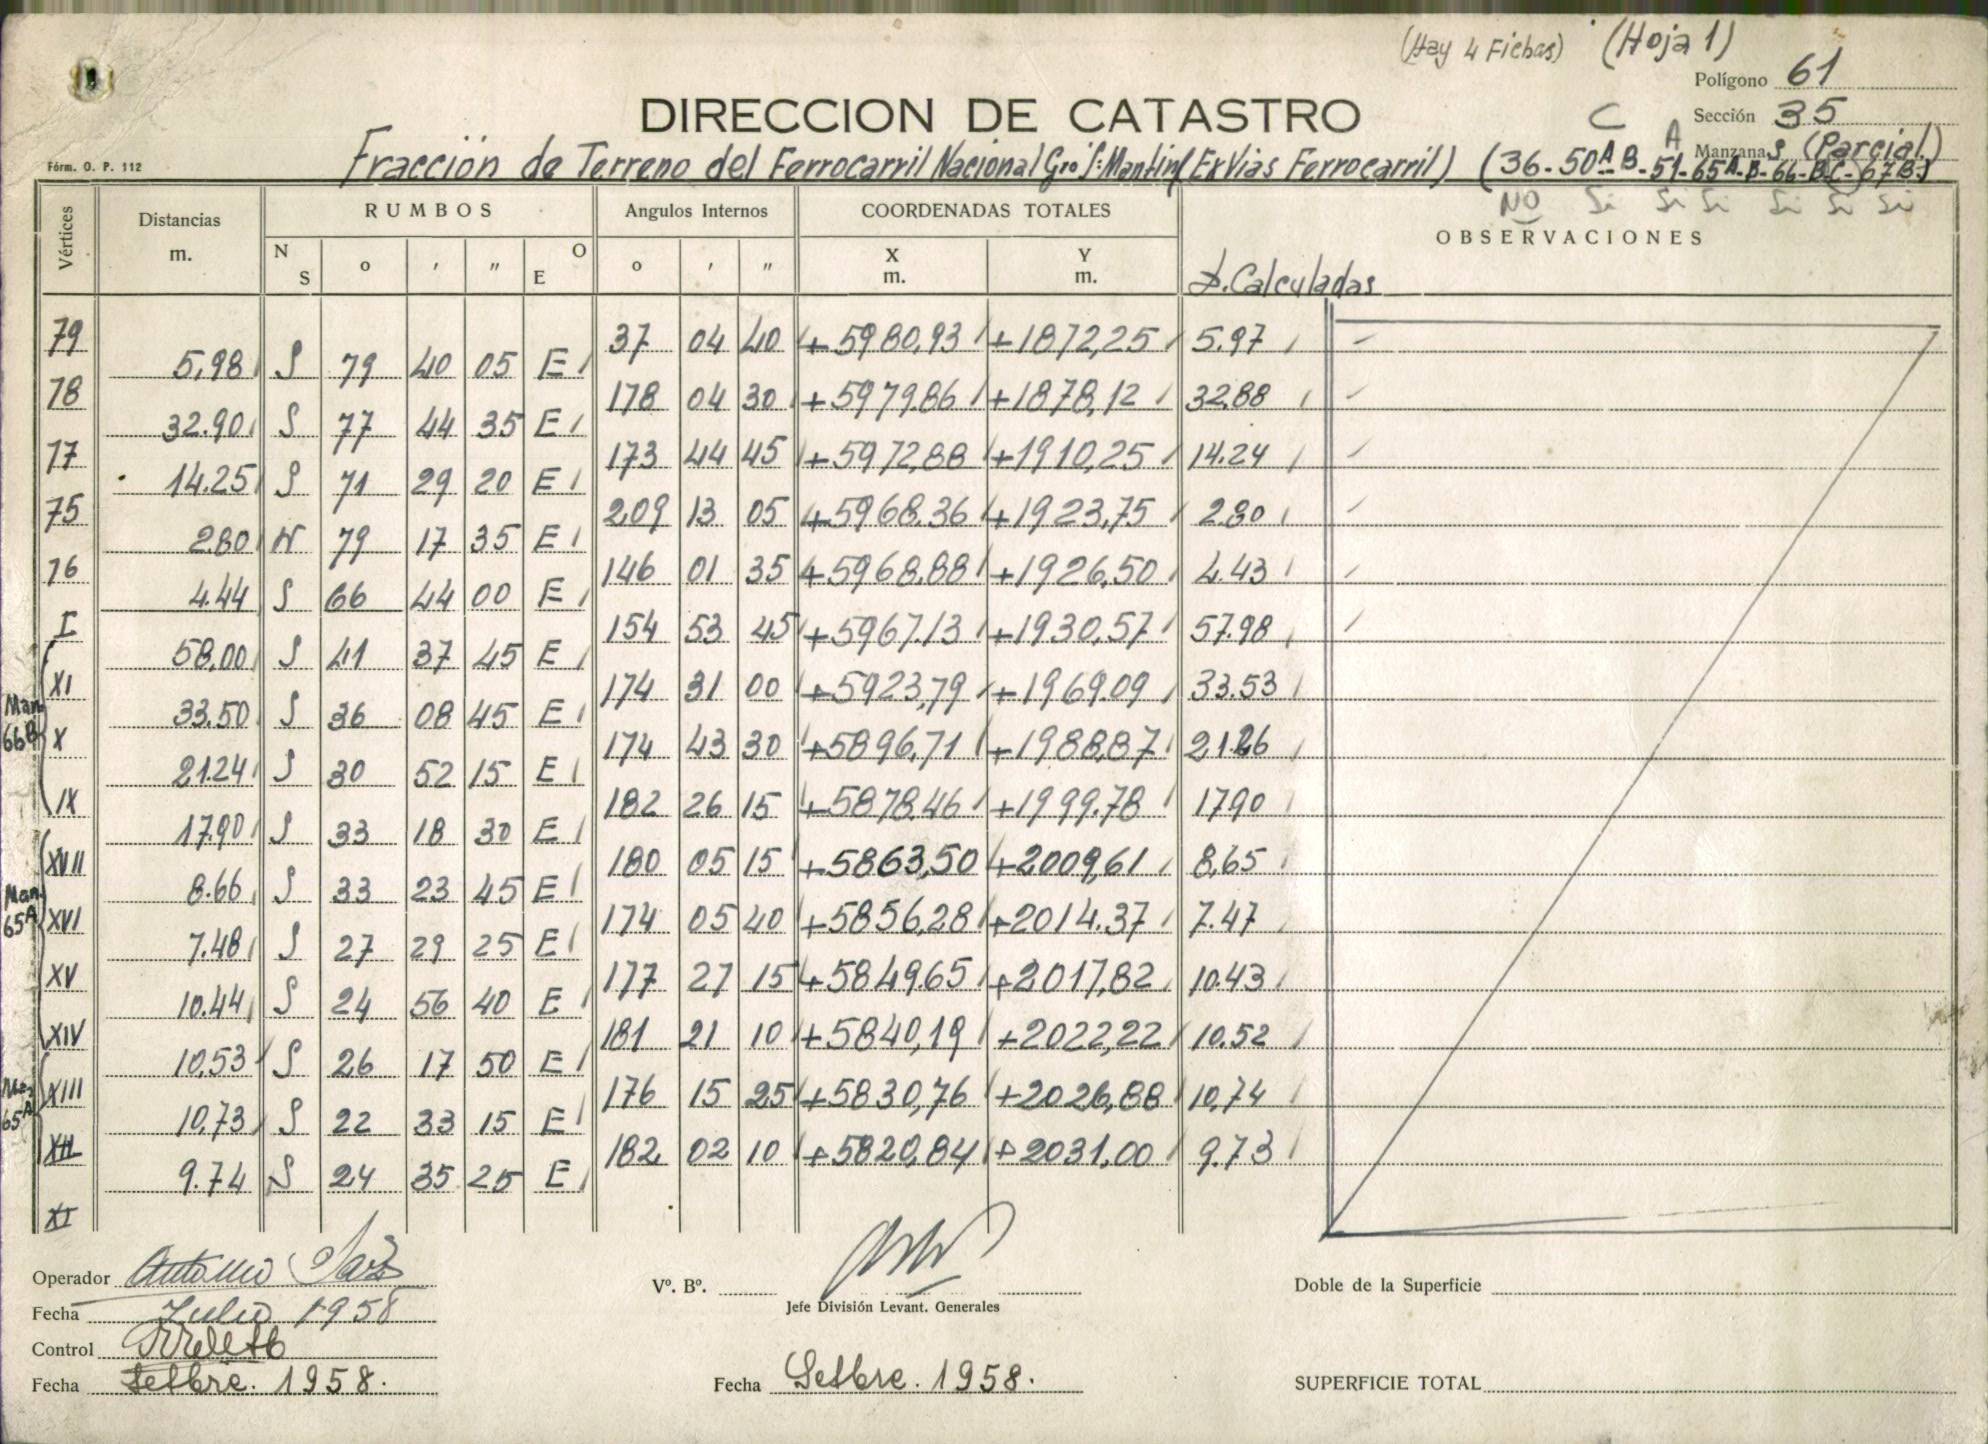 (Hay 4 Fichas) (Hoja 1)
Polígono 61
DIRECCION DE CATASTRO
C Sección 35
Fórm. O. P. 112
Fracción de Terreno del Ferrocarril Nacional Gro S: Martin (Ex Vias Ferrocarril)
A Manzana s (Parcial)
(36-50 A-B-51-65 A-B-66-B C-67 B.)
NO Si Si Si Si Si Si
Vértices Distancias m. RUMBOS Angulos Internos COORDENADAS TOTALES OBSERVACIONES
N S o ' " O E o ' " X m. Y m. D. Calculadas
79 37 04 40 +5980,93 +1872,25 5.97
5,98 S 79 40 05 E
78 178 04 30 +5979.86 +1878,12 32.88
32.90 S 77 44 35 E
77 173 44 45 +5972,88 +1910,25 14.24
14.25 S 71 29 20 E
75 209 13 05 +5968.36 +1923,75 2.80
2.80 N 79 17 35 E
76 146 01 35 +5968.88 +1926,50 4.43
4.44 S 66 44 00 E
I 154 53 45 +5967.13 +1930,57 57.98
58,00 S 41 37 45 E
XI 174 31 00 +5923,79 +1969.09 33.53
Man. 66B
33.50 S 36 08 45 E
X 174 43 30 +5896,71 +1988,87 21.26
21.24 S 30 52 15 E
IX 182 26 15 +5878.46 +1999.78 17.90
17.90 S 33 18 30 E
XVII 180 05 15 +5863,50 +2009,61 8,65
Man. 65A
8.66 S 33 23 45 E
XVI 174 05 40 +5856,28 +2014.37 7.47
7.48 S 27 29 25 E
XV 177 27 15 +5849.65 +2017,82 10.43
10.44 S 24 56 40 E
XIV 181 21 10 +5840,19 +2022,22 10.52
10,53 S 26 17 50 E
XIII 176 15 25 +5830,76 +2026,88 10,74
65A
10,73 S 22 33 15 E
XII 182 02 10 +5820,84 +2031,00 9.73
9.74 S 24 35 25 E
XI
Operador Antonio
Vº. Bº.
Doble de la Superficie
Fecha Julio 1958
Jefe División Levant. Generales
Control
Fecha Setbre. 1958.
Fecha Setbre. 1958.
SUPERFICIE TOTAL